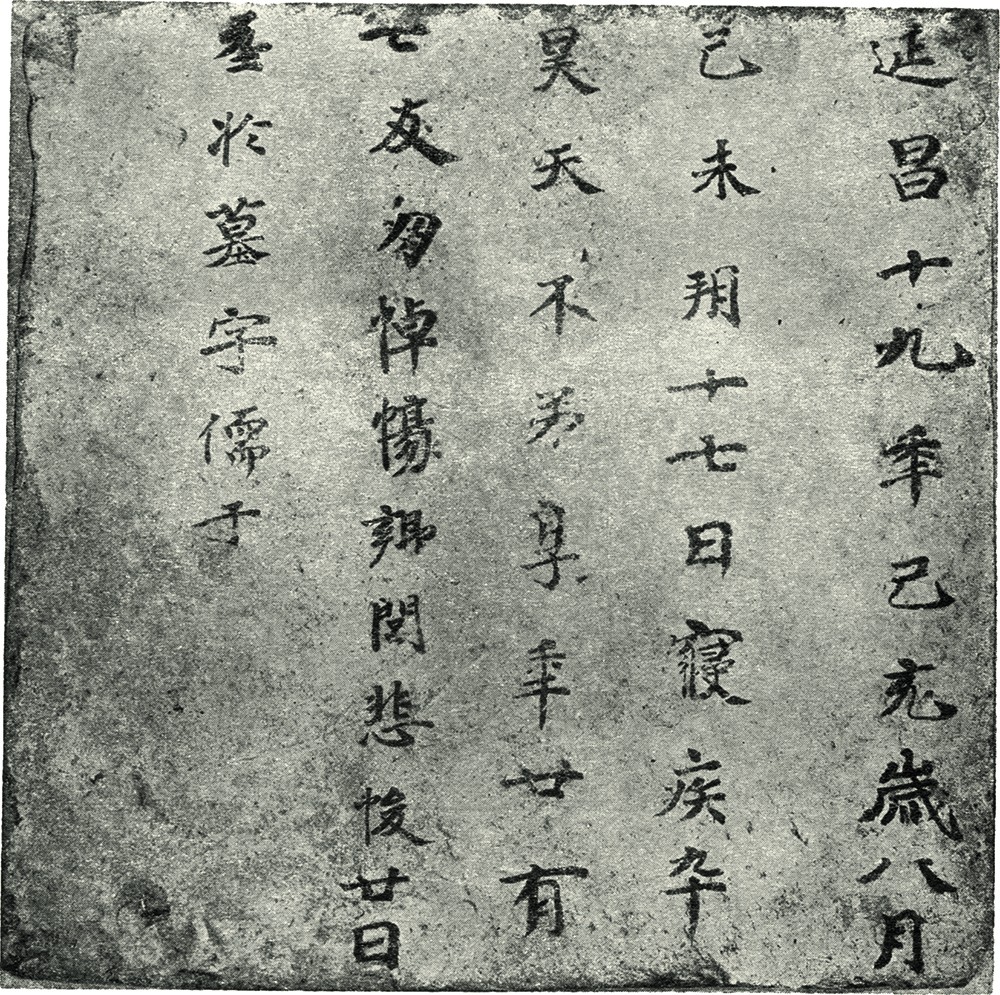 延昌十九年己亥歲八月
己未朔十七日寢疾卒
昊天不弔享年廿有
七友朋悼傷閭悲悛廿日
於墓字儒子